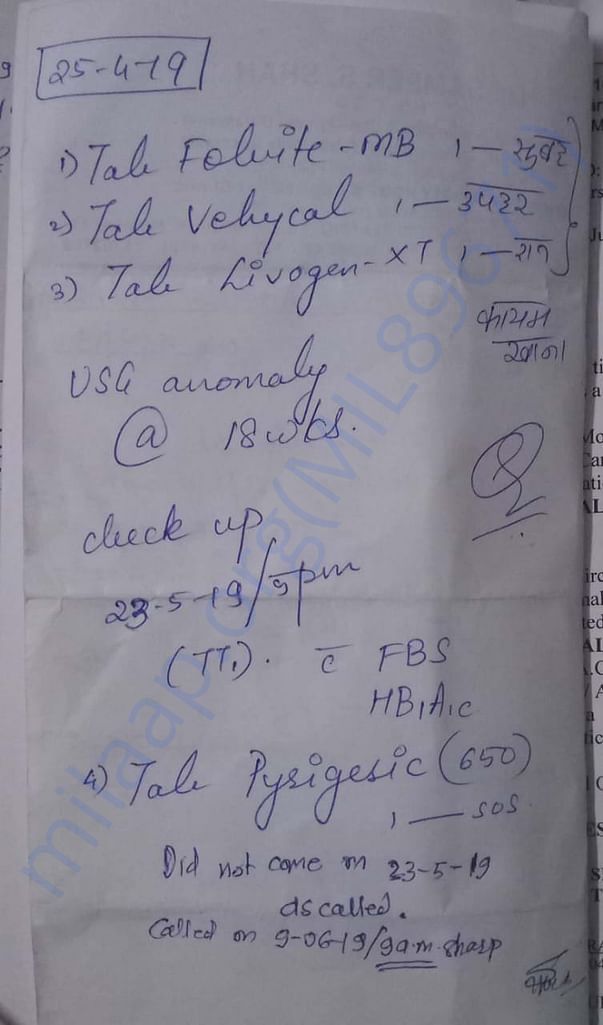 25-4-19
1) Tab Folvite-MB 1 —
2) Tab Vehycal 1 —
3) Tab Livogen-XT 1 — रात
कायम
USG anomaly
@ 18 wks.
check up
23-5-19/5pm
(TT1). c̅ FBS
HB1A1C
4) Tab Pyrigesic (650)
1 — SOS
Did not come on 23-5-19
as called.
Called on 9-06-19/9a.m. sharp
milaap.org(MIL896711)